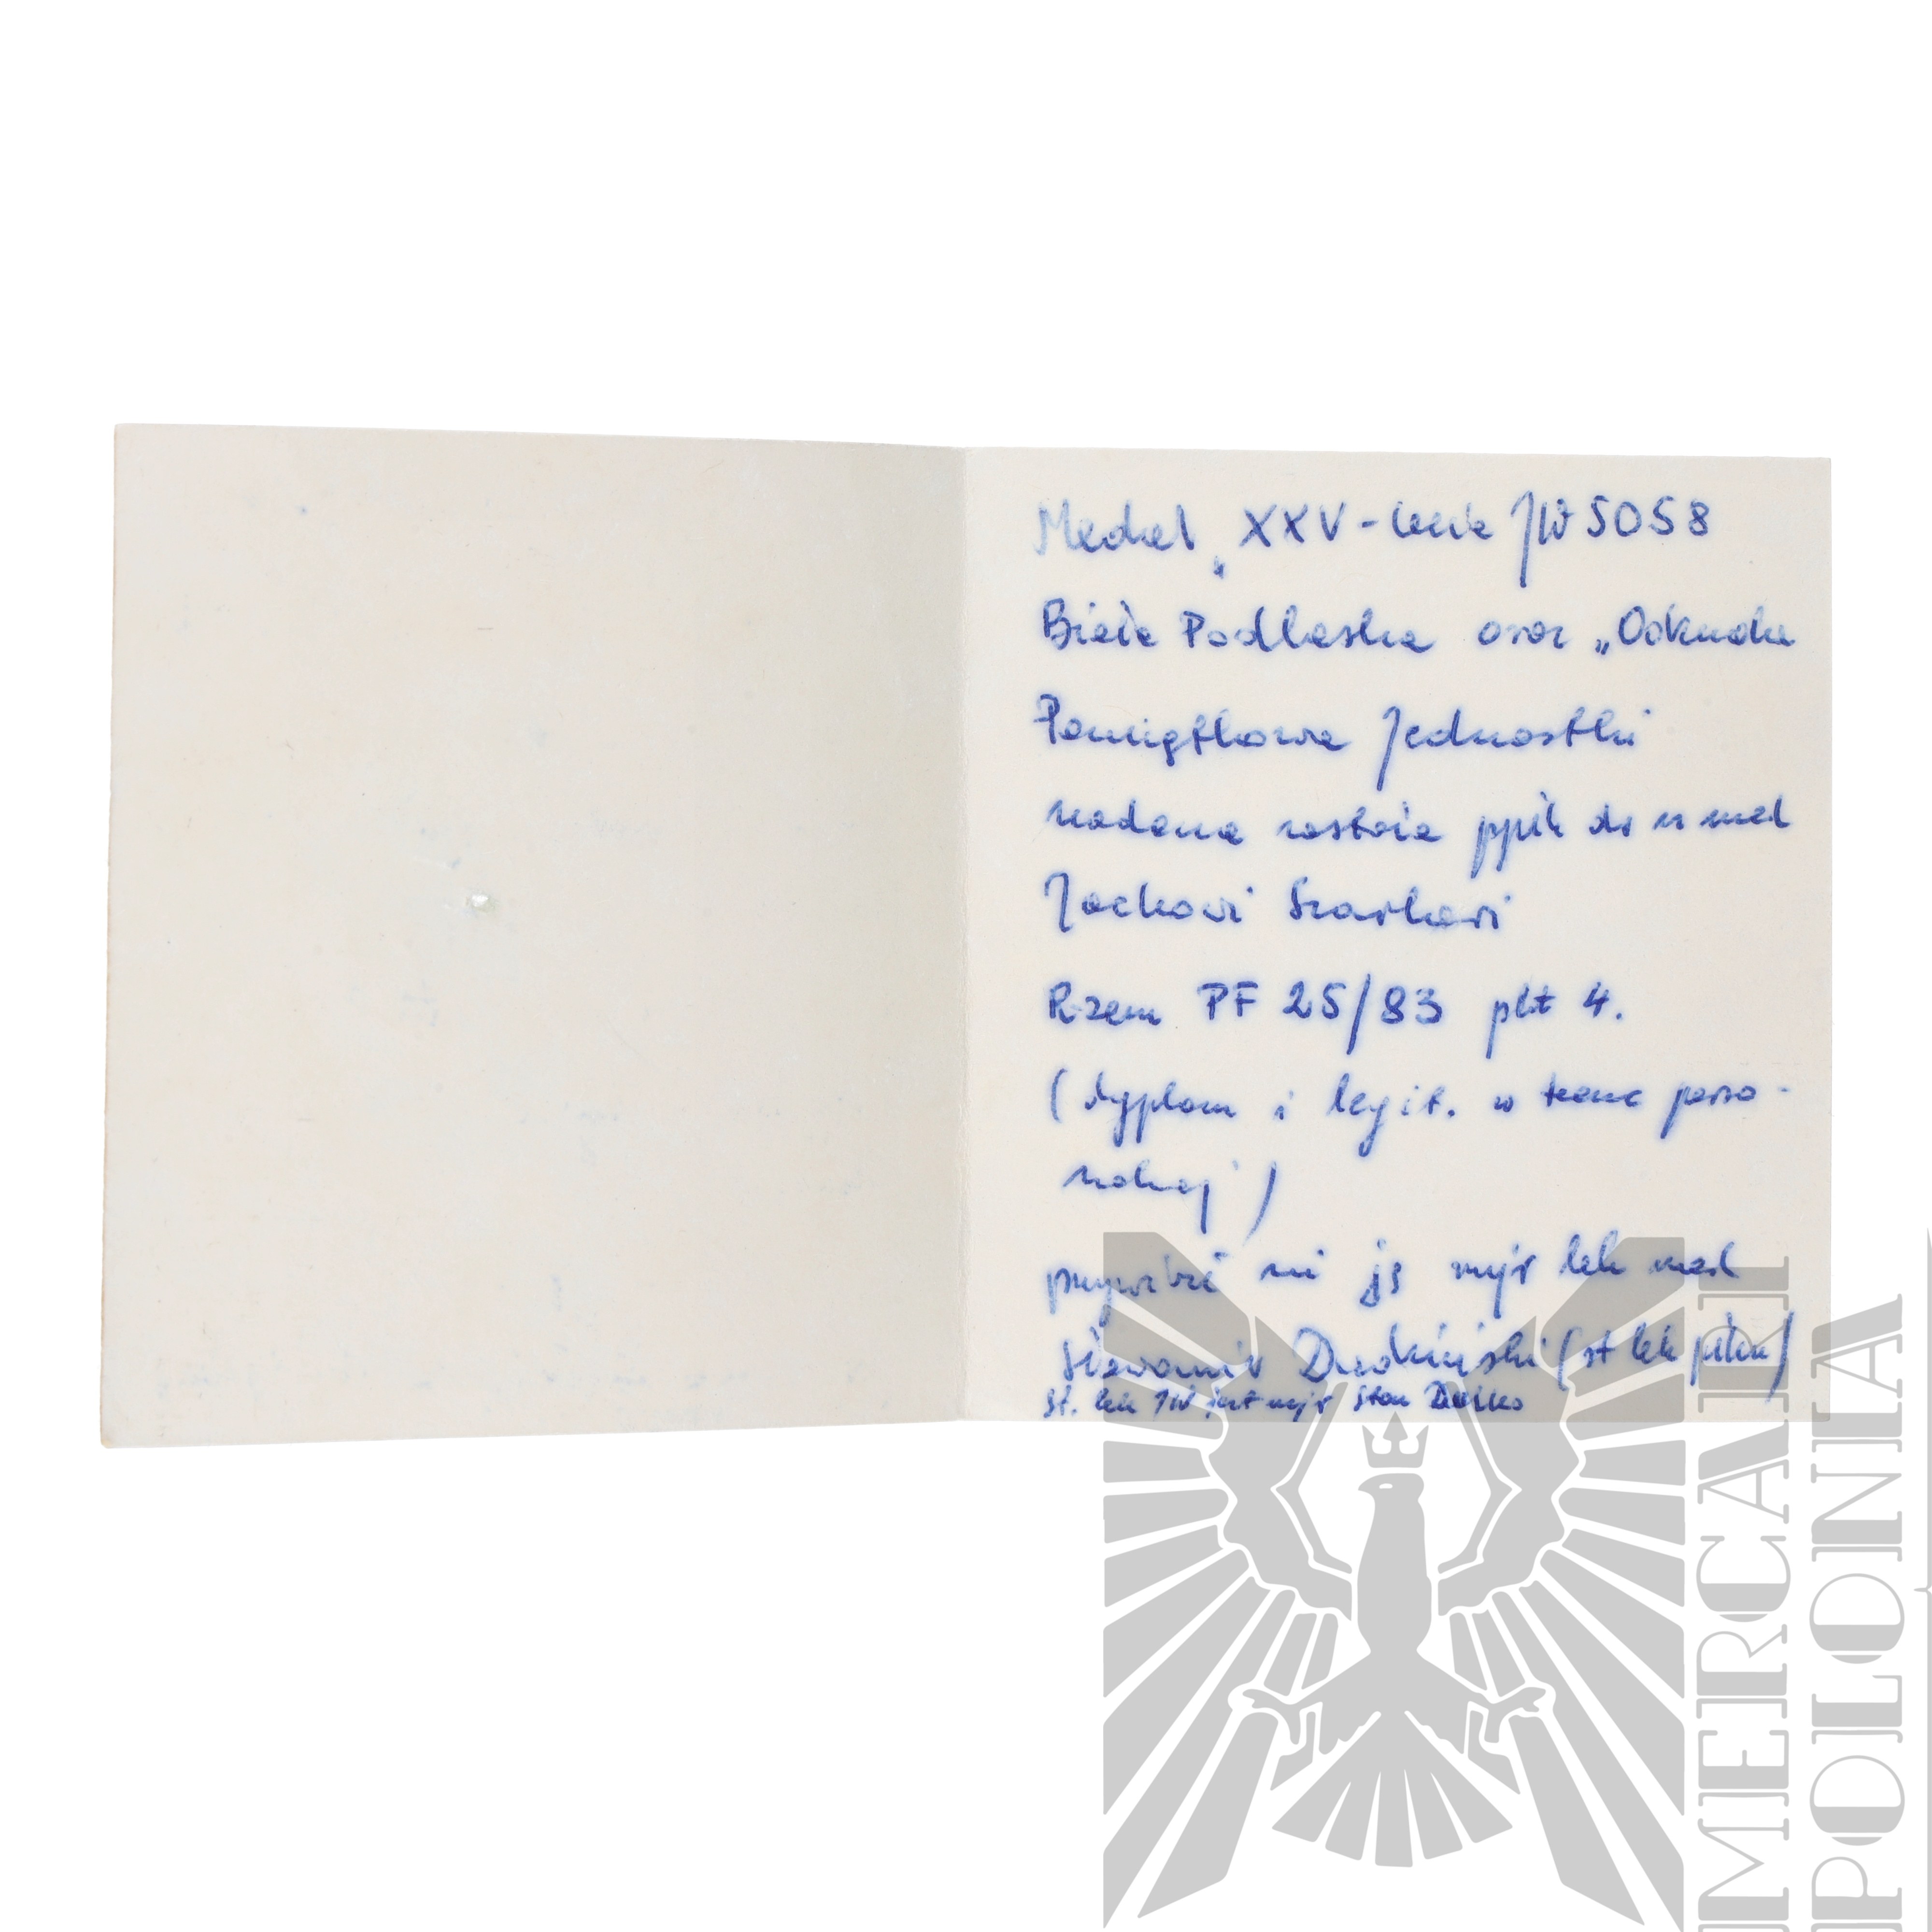 Medal „XXV-lecie JW 5058
Biała Podlaska oraz „Odznaka
Pamiątkowa Jednostki
nadana została ppłk dr n med
Jackowi Szarkowi
Rozm PF 25/83 pkt 4.
(dyplom i legit. w teczce perso-
nalnej)
przywiózł mi ją mjr lek med
Sławomir Dudziński (st lek płku)
st. lek JW jest mjr Stan
MERCARI
POLONIA